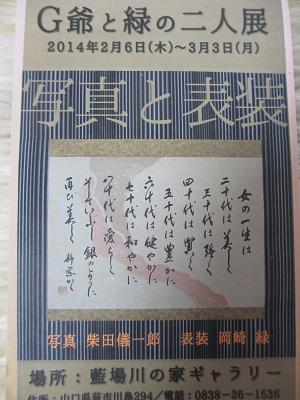 G爺と緑の二人展
2014年2月6日(木)〜3月3日(月)
写真と表装
女の一生は
二十代は美しく
三十代は強く
四十代は賢く
五十代は豊かに
六十代は健やかに
七十代は和やかに
八十代は愛らしく
そしていぶし銀のように
再び美しく
写真 柴田儀一郎 表装 岡崎 緑
場所：藍場川の家ギャラリー
住所：山口県萩市川島294／電話：0838-26-1536